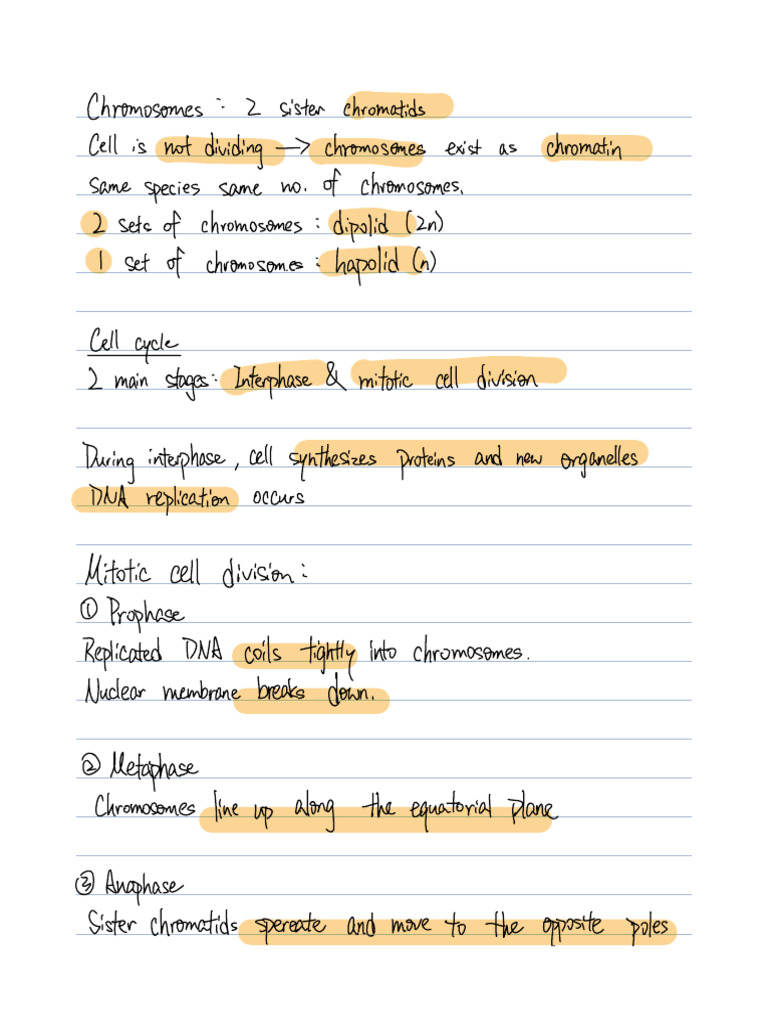 Chromosomes : 2 sister chromatids
Cell is not dividing → chromosomes exist as chromatin
same species same no. of chromosomes.
2 sets of chromosomes : dipolid (2n)
1 set of chromosomes : hapolid (n)
Cell cycle
2 main stages : Interphase & mitotic cell division
During interphase, cell synthesizes proteins and new organelles
DNA replication occurs
Mitotic cell division :
① Prophase
Replicated DNA coils tightly into chromosomes.
Nuclear membrane breaks down.
② Metaphase
Chromosomes line up along the equatorial plane
③ Anaphase
Sister chromatids spereate and move to the opposite poles